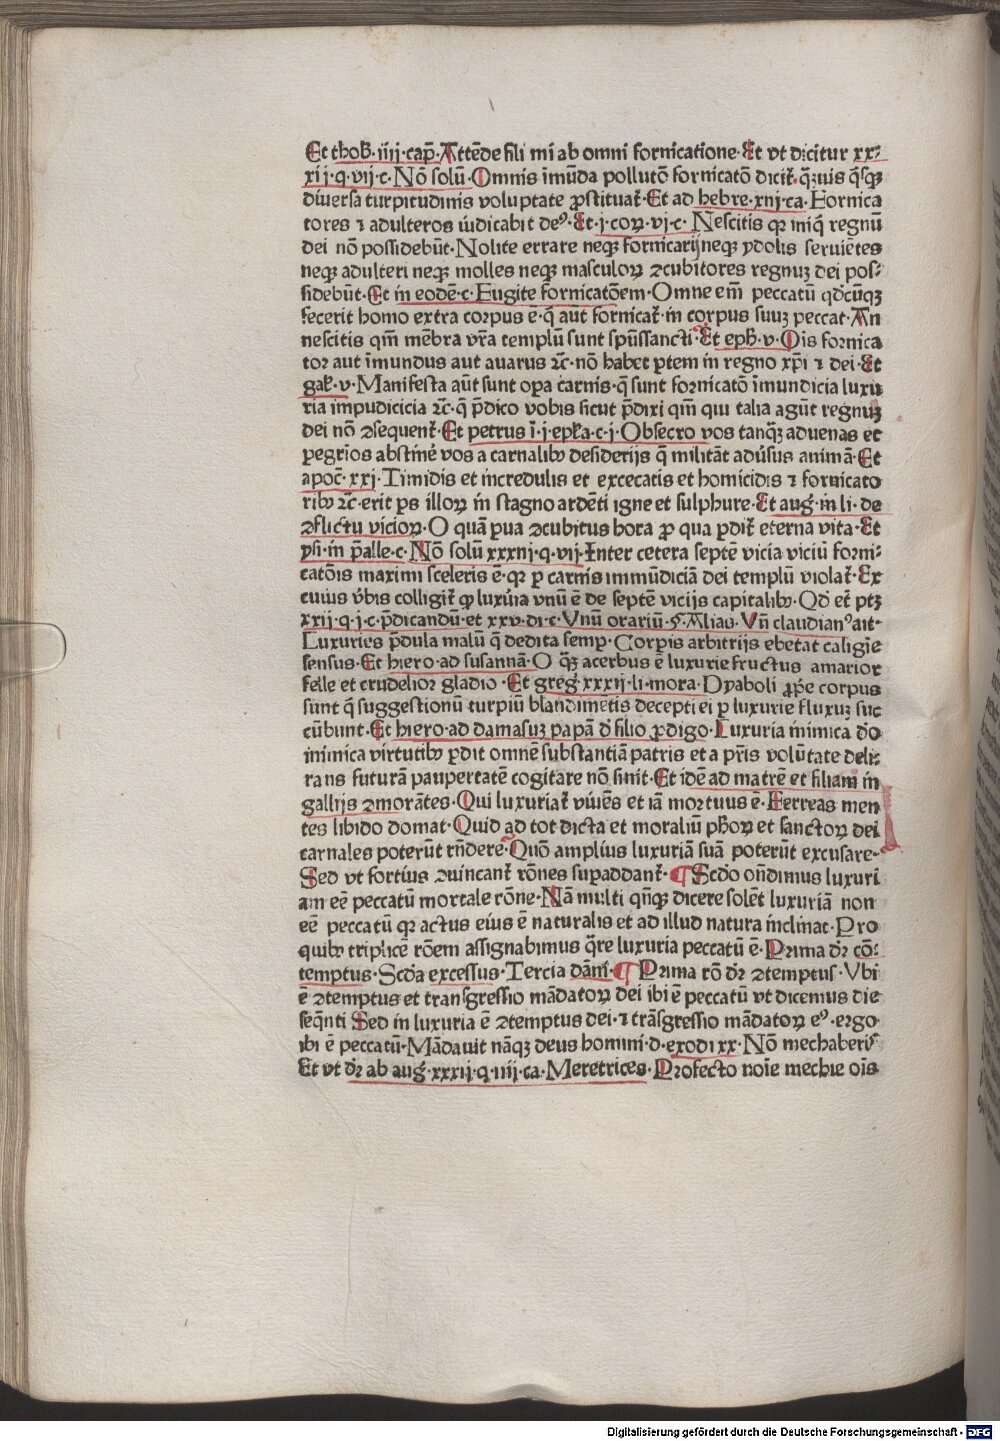 Et thob̃·iiij·cap̃·Attẽde fili mi ab omni fornicatione·Et vt dicitur xx⸗
xij·q·vij·c·Nõ solũ·Omnis ĩmũda pollutõ fornicatõ dicit᷑·q̃ꝫuis q̃sqꝫ
diuersa turpitudinis voluptate ꝓstituat᷑·Et ad hebre·xiij·ca·Fornica
tores ⁊ adulteros iudicabit deꝰ·Et·j·coꝝ·vj·c·Nescitis qꝛ iniq̃ regnũ
dei nõ possidebũt·Nolite errare neqꝫ fornicarij neqꝫ ydolis seruiẽtes
neqꝫ adulteri neqꝫ molles neqꝫ masculoꝝ ꝯcubitores regnuꝫ dei pos⸗
sidebũt·Et in eodẽ·c·Fugite fornicatõem·Omne em̃ peccatũ qd̃cũqꝫ
fecerit homo extra corpus ẽ·q̃ aut fornicat᷑·in corpus suuꝫ peccat·An
nescitis qm̃ mẽbra vr̃a templũ sunt spũssancti·Et eph̃·v·Ois fornica
tor aut ĩmundus aut auarus ⁊c̃·nõ habet ꝑtem in regno xp̃i ⁊ dei·Et
gal̃·v·Manifesta aũt sunt opa carnis·q̃ sunt fornicatõ ĩmundicia luxu
ria impudicicia ⁊c̃·q̃ p̃dico vobis sicut p̃dixi qm̃ qui talia agũt regnuꝫ
dei nõ ꝯsequent᷑·Et petrus ĩ·j·ep̃la·c·j·Obsecro vos tanq̃ꝫ aduenas et
ꝑegrĩos abstinẽ vos a carnalibꝫ desiderijs q̃ militãt adũsus animã·Et
apoc̃·xxj·Timidis et incredulis et excecatis et homicidis ⁊ fornicato
ribꝫ ⁊c̃·erit ꝑs illoꝝ in stagno ardẽti igne et sulphure·Et aug̃·in li·de
ꝯflictu vicioꝝ·O quã ꝑua ꝯcubitus hora ꝓ qua ꝑdit᷑ eterna vita·Et
ꝑsi·in p̃alle·c·Nõ solũ xxxiij·q·vij·Inter cetera septẽ vicia viciũ forni⸗
catõis maximi sceleris ẽ·qꝛ ꝑ carnis immũdiciã dei templũ violat᷑·Ex
cuius v̾bis colligit᷑ ꝙ luxũia vnũ ẽ de septẽ vicijs capitalibꝫ·Qd̃ et᷑ ptꝫ
xxij·q·j·c·p̃dicandũ·et xxv·di·c·Vnũ orariũ·§·Alias·Vñ claudianꝰ ait·
Luxuries p̃dula malũ q̃ dedita semꝑ·Corꝑis arbitrijs ebetat caligĩe
sensus·Et hiero·ad susannã·O q̃ꝫ acerbus ẽ luxurie fructus amarior
felle et crudelior gladio·Et greg̃·xxxij·li·mora·Dyaboli ꝓp̃e corpus
sunt q̃ suggestionũ turpiũ blandimẽtis decepti ei ꝑ luxurie fluxuꝫ suc
cũbunt·Et hiero·ad damasuꝫ papã d̃ filio ꝓdigo·Luxuria inimica d̃o
inimica virtutibꝫ ꝑdit omnẽ substantiã patris et a p̃ris volũtate deli⸗
rans futurã paupertatẽ cogitare nõ sinit·Et idẽ ad matrẽ et filiam in
gallijs ꝯmorãtes·Qui luxuriat᷑ viuẽs et iã mortuus ẽ·Ferreas men
tes libido domat·Quid ad tot dicta et moraliũ ph̃oꝝ et sanctoꝝ dei
carnales poterũt rñdere·Quõ amplius luxuriã suã poterũt excusare·
Sed vt fortius ꝯuincant᷑ rõnes suꝑaddant᷑·¶ Scd̃o oñdimus luxuri
am eẽ peccatũ mortale rõne·Nã multi qñqꝫ dicere solẽt luxuriã non
eẽ peccatũ qꝛ actus eius ẽ naturalis et ad illud natura inclinat·Pro
quibꝫ triplicẽ rõem assignabimus q̃re luxuria peccatũ ẽ·Prima dr̃ cõ⸗
temptus·Scd̃a excessus·Tercia dãni·¶ Prima rõ dr̃ ꝯtemptus·Vbi
ẽ ꝯtemptus et transgressio mãdatoꝝ dei ibi ẽ peccatũ vt dicemus die
seq̃nti Sed in luxuria ẽ ꝯtemptus dei·⁊ trãsgressio mãdatoꝝ eꝰ·ergo·
ibi ẽ peccatũ·Mãdauit nãqꝫ deus homini·d·exodi xx·Nõ mechaberis
Et vt dr̃ ab aug̃·xxxij·q·iiij·ca·Meretrices·Profecto noĩe mechie oĩs
Digitalisierung gefördert durch die Deutsche Forschungsgemeinschaft - DFG